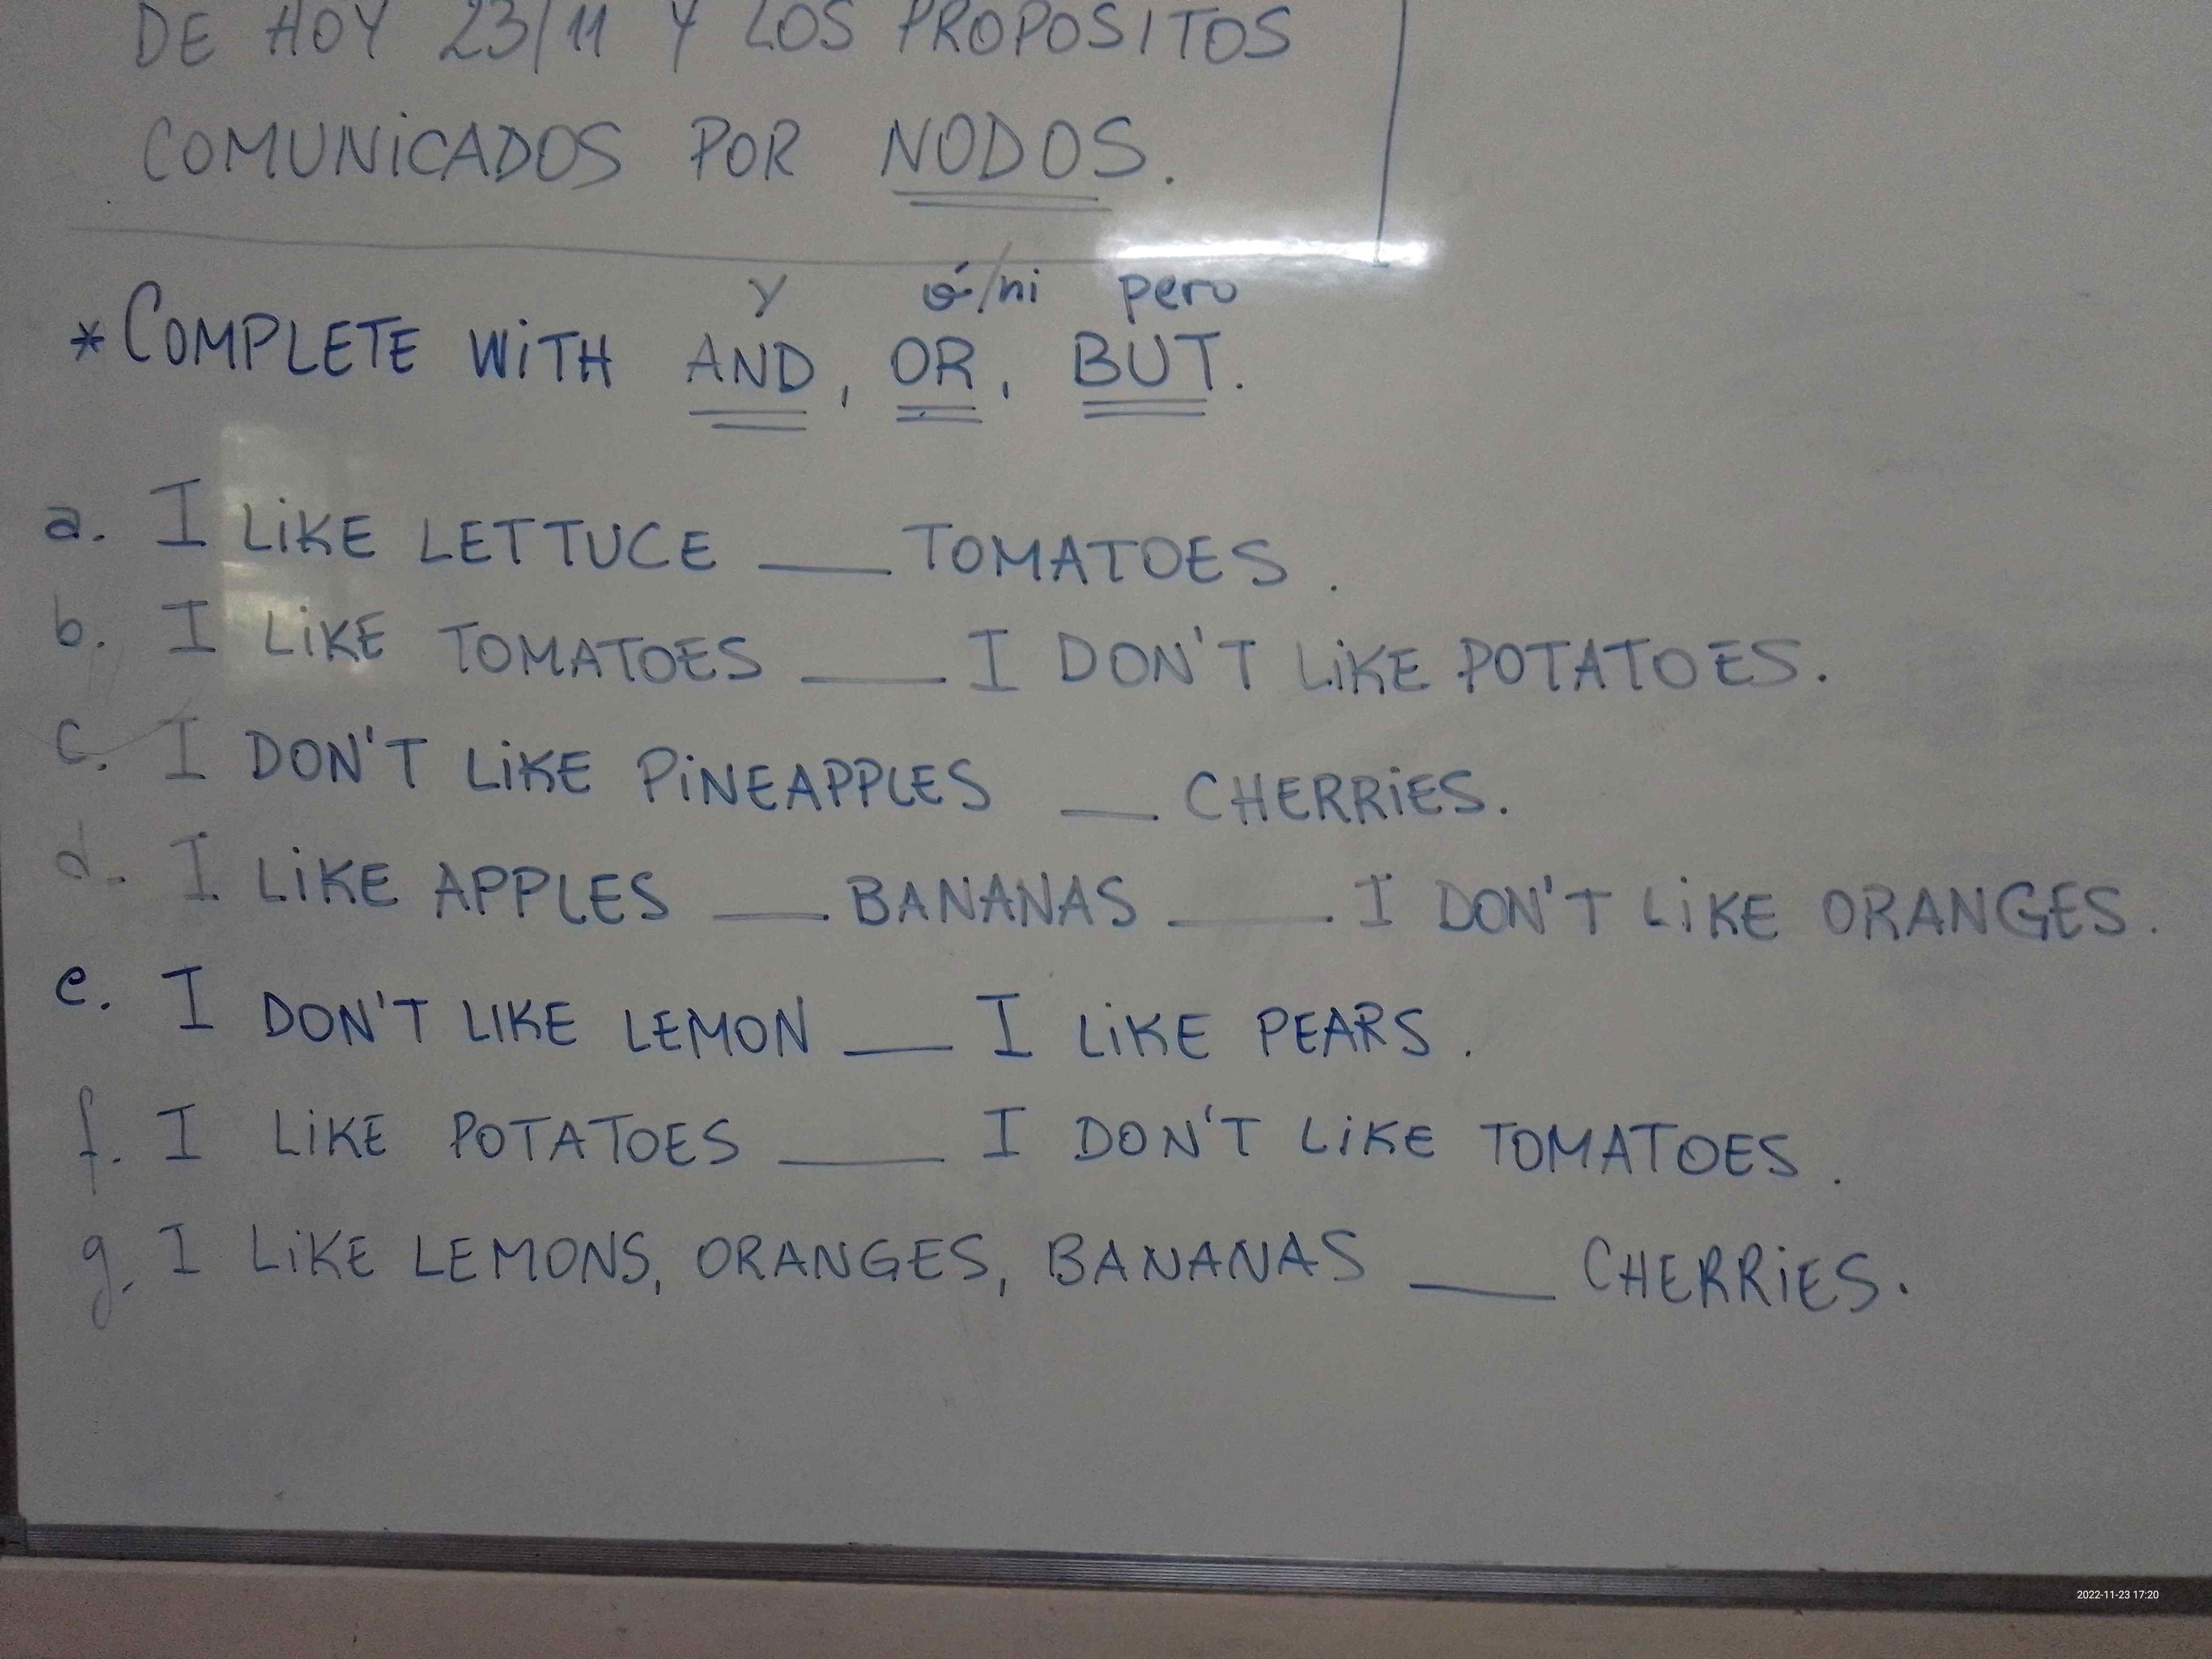 DE HOY 23/11 Y LOS PROPOSITOS
COMUNiCADOS POR NODOS.
y ó/ni pero
* COMPLETE WiTH AND, OR, BUT.
a. I LiKE LETTUCE ___ TOMATOES.
b. I LiKE TOMATOES ___ I DON'T LiKE POTATOES.
c. I DON'T LiKE PiNEAPPLES __ CHERRiES.
d. I LiKE APPLES ___ BANANAS ___ I DON'T LiKE ORANGES.
e. I DON'T LIKE LEMON ___ I LiKE PEARS.
f. I LiKE POTATOES ___ I DON'T LiKE TOMATOES.
g. I LiKE LEMONS, ORANGES, BANANAS ___ CHERRiES.
2022-11-23 17:20